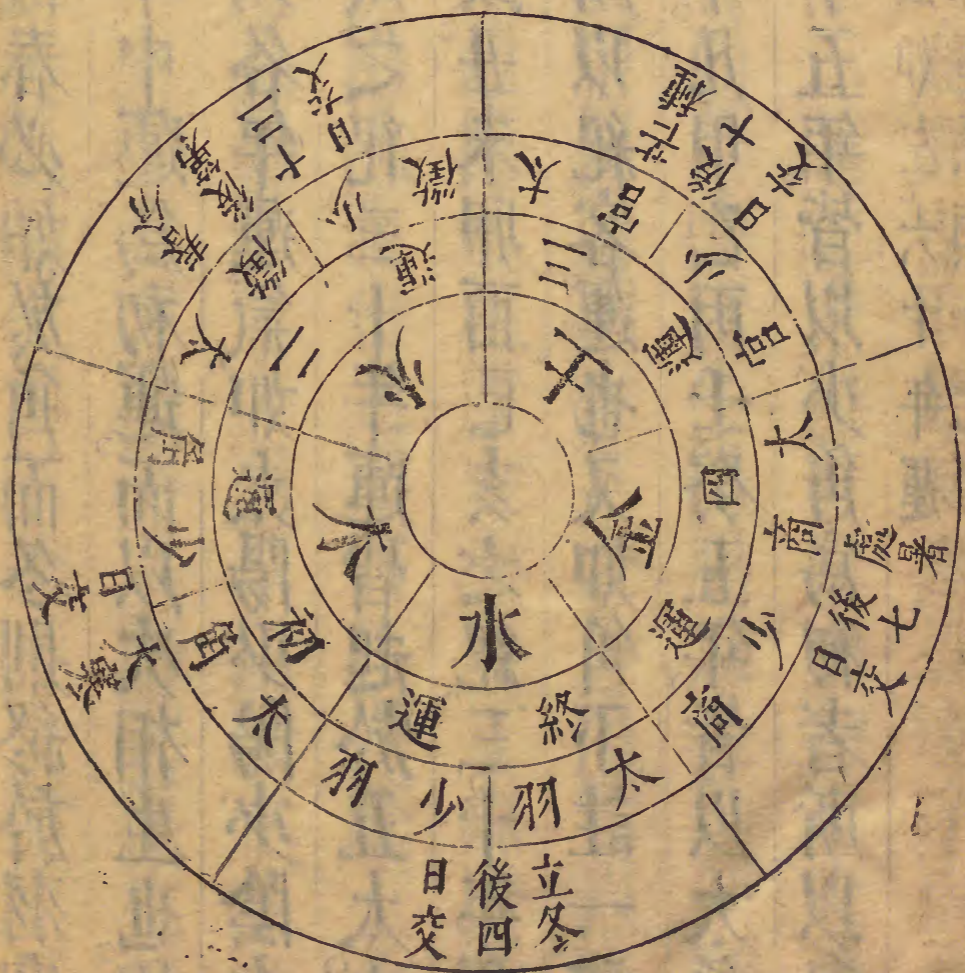 木
火
土
金
水
初運
二運
三運
四運
終運
太角
少角
太徵
少徵
太宮
少宮
太商
少商
太羽
少羽
大寒
日交
春分
後第
十三
日交
芒種
後十
日交
處暑
後七
日交
立冬
後四
日交